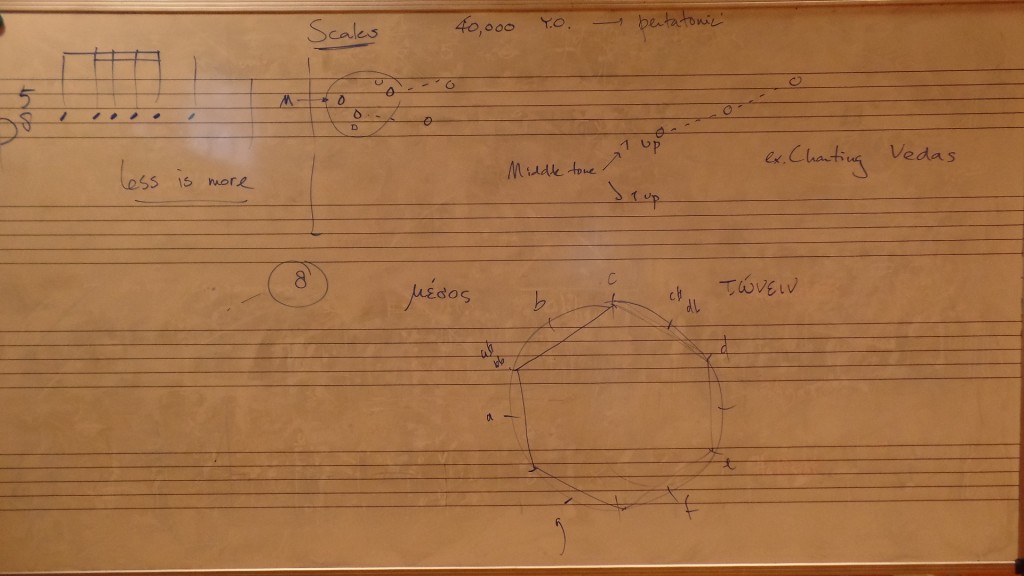 Scales 40,000 Y.O. → pentatonic
5
8
M
Middle tone
↑ up
↑ up
ex. Chanting Vedas
Less is more
8
μέσος
τώνειν
c
b
c#
db
d
a#
bb
a
e
f
g